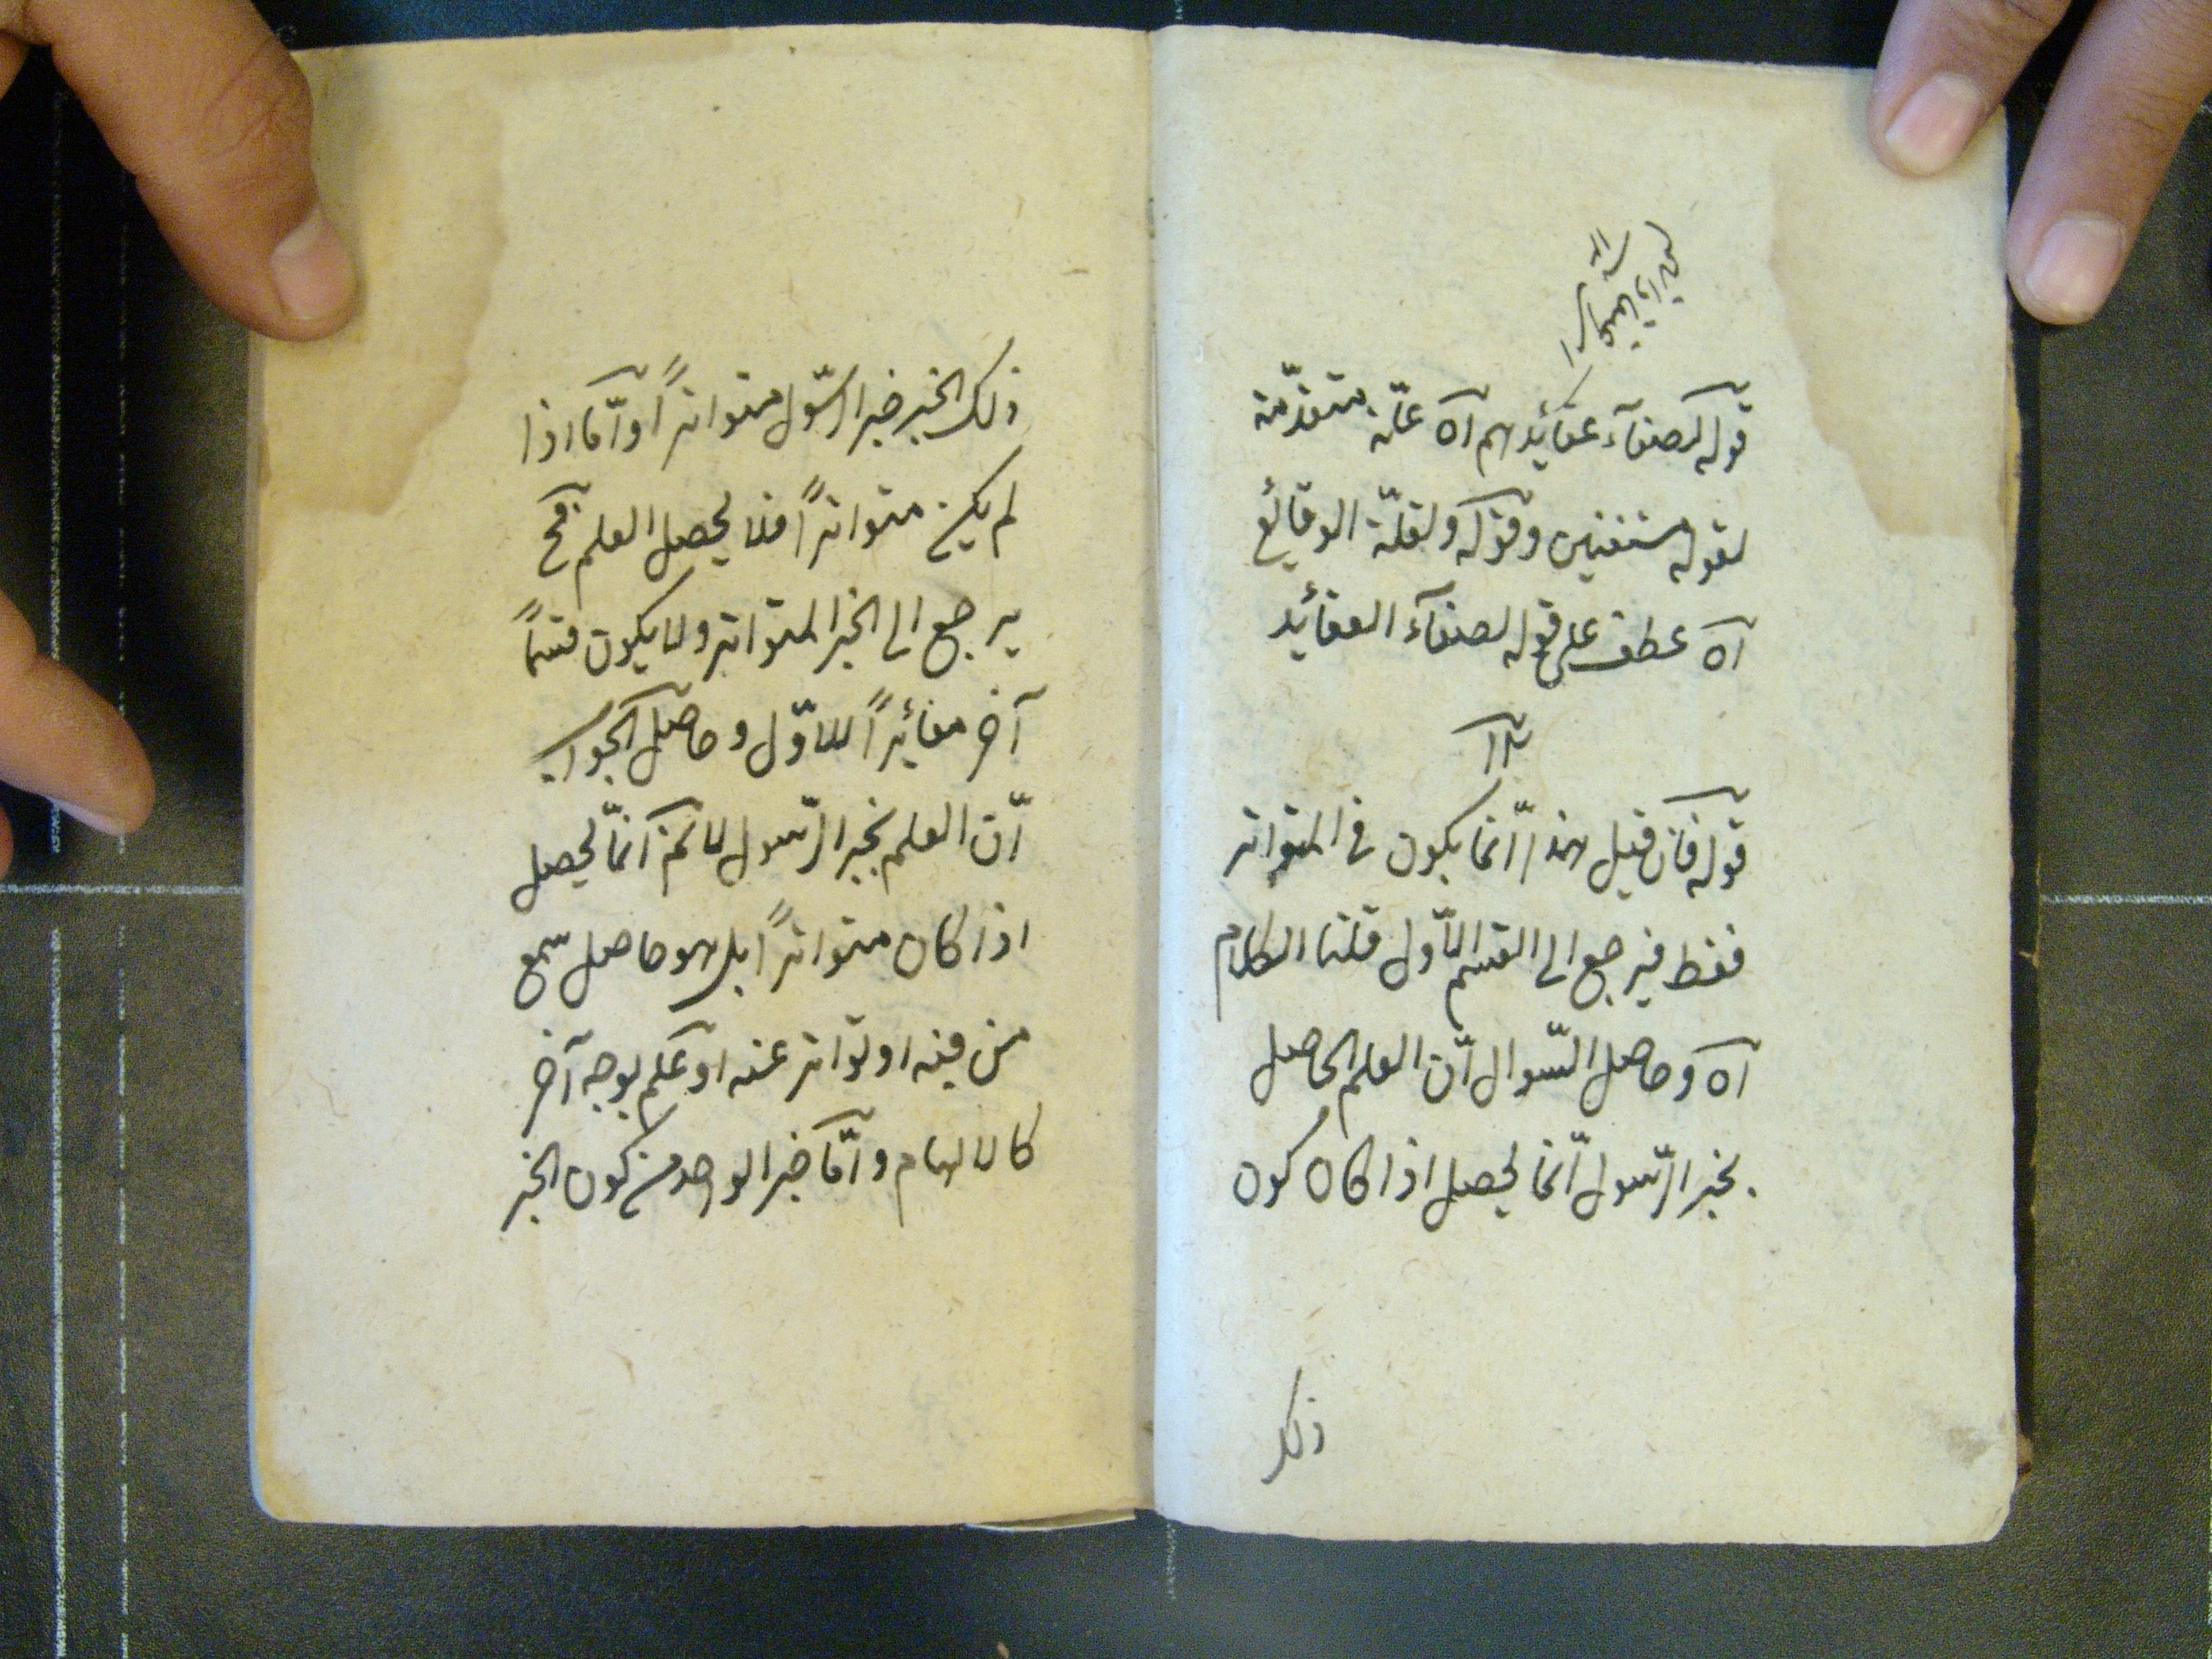 قوله لصفآء عقائدهم آه علّة متقدّمة
لقوله مستغنين وقوله ولقلّة الوقائع
آه عطف على قوله لصفآء العقائد
قوله فان قيل هذا انّما يكون في المتواتر
فقط فيرجع الى القسم الاوّل قلنا الكلام
آه وحاصل السّوال انّ العلم الحاصل
بخبر الرّسول انّما يحصل اذا كان كون
ذلك
ذلك الخبر خبر الرّسول متواتراً وامّا اذا
لم يكن متواتراً فلا يحصل العلم فح
يرجع الى الخبر المتواتر ولا يكون قسماً
آخر مغائراً للاوّل وحاصل الجواب
انّ العلم بخبر الرّسول لانم انّما يحصل
اذا كان متواتراً بل هو حاصل سمع
من فيه او تواتر عنه او علم بوجه آخر
كالالهام وامّا خبر الواحد من كون الخبر